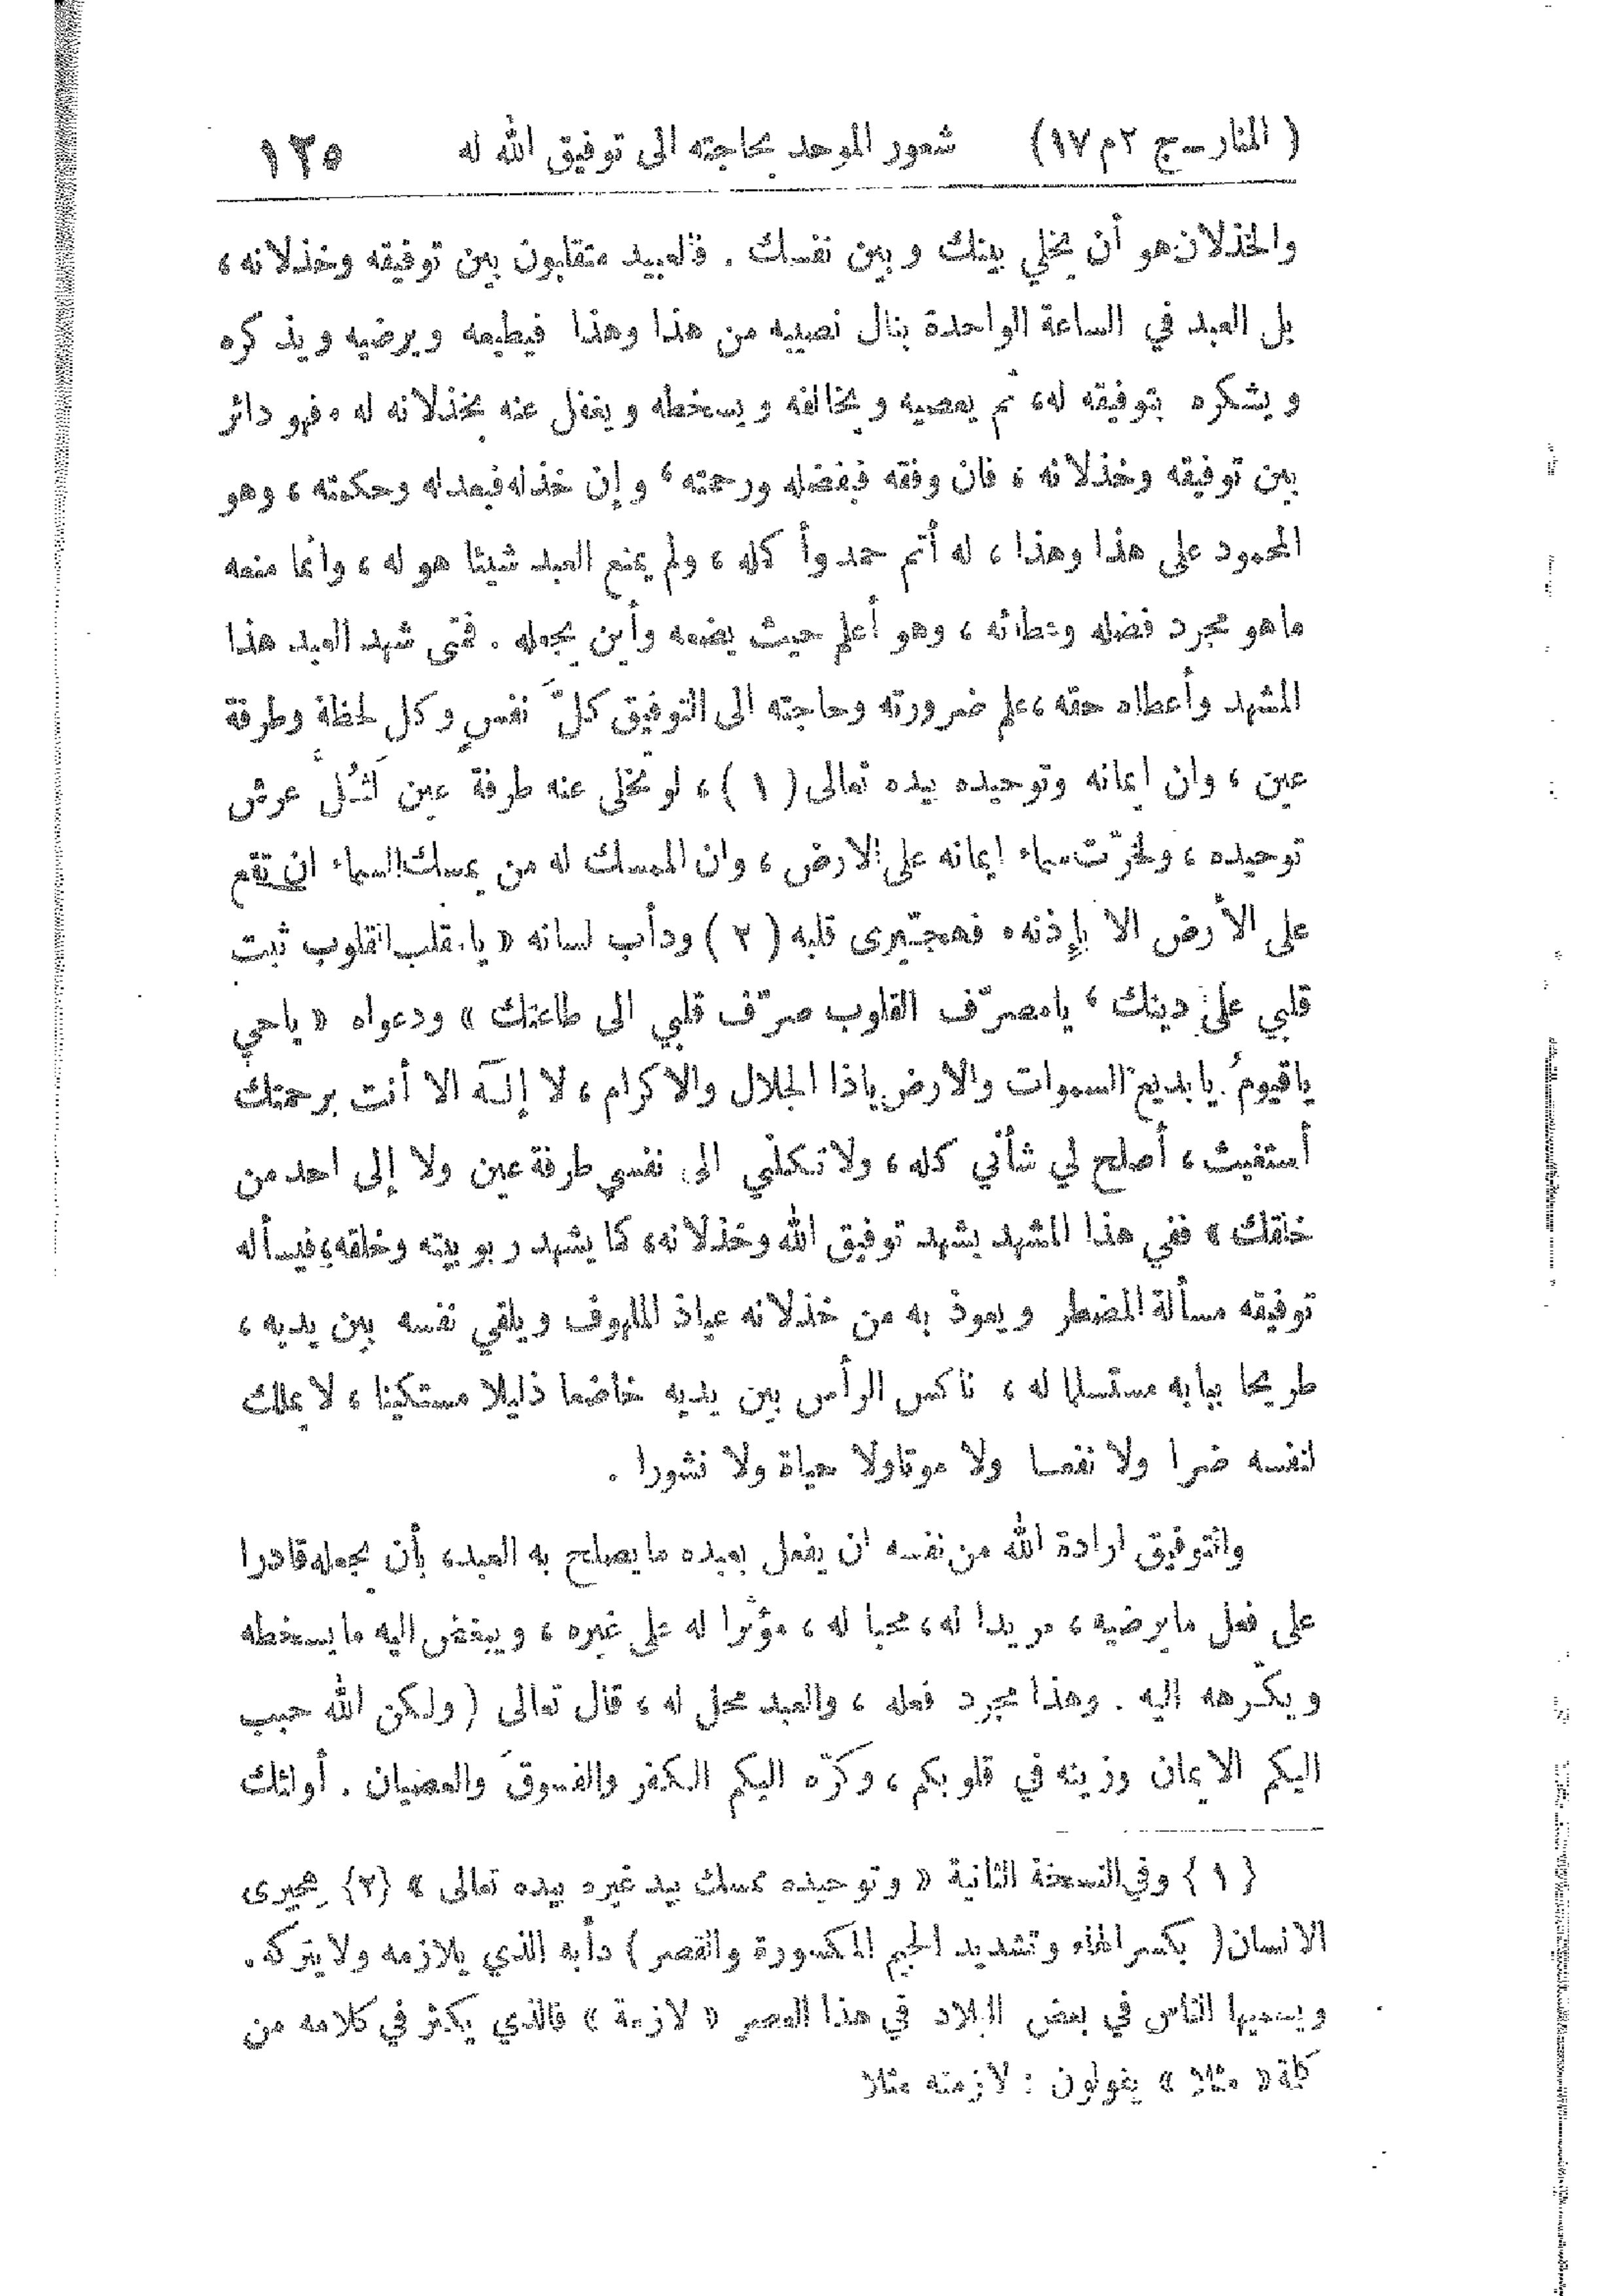 ( المنار ـ ج ٢ م ١٧) شعور الموحد بحاجته الى توفيق الله له ١٢٥
والخذلان هو أن يخلي بينك وبين نفسك . فالعبيد متقلبون بين توفيقه وخذلانه ،
بل العبد في الساعة الواحدة ينال نصيبه من هذا وهذا فيطيعه ويرضيه ويذكره
ويشكره بتوفيقه له، ثم يعصيه ويخالفه ويسخطه ويغفل عنه بخذلانه له ، فهو دائر
بين توفيقه وخذلانه ، فان وفقه فبفضله ورحمته ، وإن خذله فبعدله وحكمته ، وهو
المحمود على هذا وهذا ، له أتم حمد وأ كمله ، ولم يمنع العبد شيئا هو له ، وانما منعه
ماهو مجرد فضله وعطائه ، وهو أعلم حيث يضعه وأين يجعله . فمتى شهد العبد هذا
المشهد وأعطاه حقه ،علم ضرورته وحاجته الى التوفيق كلَّ نفسٍ وكل لحظة وطرفة
عين ، وان ايمانه وتوحيده بيده تعالى ( ١ ) ، لو تخلى عنه طرفة عين لَثُلَّ عرش
توحيده ، ولخرّت سماء ايمانه على الارض ، وان الممسك له من يمسك السماء ان تقع
على الأرض الا بإذنه ، فهجّيرى قلبه ( ٢ ) ودأب لسانه « يا مقلب القلوب ثبت
قلبي على دينك ، يامصرّف القلوب صرّف قلبي الى طاعتك » ودعواه « ياحي
ياقيومُ يا بديع السموات والارض ياذا الجلال والاكرام ، لا إلـَه الا أنت برحمتك
أستغيث ، أصلح لي شأني كله ، ولا تكلني الى نفسي طرفة عين ولا إلى احد من
خلقك » ففي هذا المشهد يشهد توفيق الله وخذلانه، كما يشهد ربوبيته وخلقه، فيسأله
توفيقه مسألة المضطر ويعوذ به من خذلانه عياذ الملهوف ويلقي نفسه بين يديه ،
طريحا ببابه مستسلما له ، ناكس الرأس بين يديه خاضعا ذليلا مستكينا ، لا يملك
لنفسه ضرا ولا نفعا ولا موتا ولا حياة ولا نشورا .
والتوفيق ارادة الله من نفسه ان يفعل بعبده مايصلح به العبد، بأن يجعله قادرا
على فعل مايرضيه ، مريدا له، محبا له ، مؤثرا له على غيره ، ويبغض اليه مايسخطه
ويكرّهه اليه . وهذا مجرد فعله ، والعبد محل له ، قال تعالى ( ولكن الله حبب
اليكم الايمان وزينه في قلوبكم ، وكرّه اليكم الكفر والفسوقَ والعصيان . أولئك
{ ١ } وفي النسخة الثانية « وتوحيده يمسك بيد غيره بيده تعالى » {٢} هجيرى
الانسان( بكسر الهاء وتشديد الجيم المكسورة والقصر ) دأبه الذي يلازمه ولا يتركه.
ويسميها الناس في بعض البلاد في هذا العصر « لازمة » فالذي يكثر في كلامه من
كلمة « مثلا » يقولون : لازمته مثلا